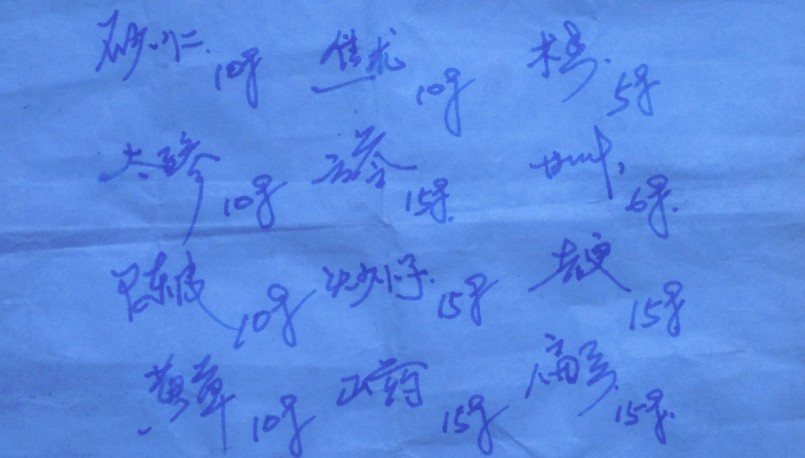 砂仁 10g 焦术 10g 木香 5g
太子参 10g 云苓 15g 甘草 6g
陈皮 10g 15g 15g
10g 山药 15g 扁豆 15g